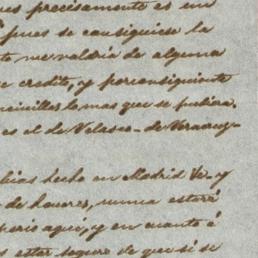 precisamente es un
pues se consiguiese la
me valdria de alguna
credito, y por consiguiente
lo mas que se pudiera.
es el de Velasco - de Veracruz -
hecho en Madrid &c. y
de haveres, nunca estará
aqui, y en cuanto á
estar seguro de que si se